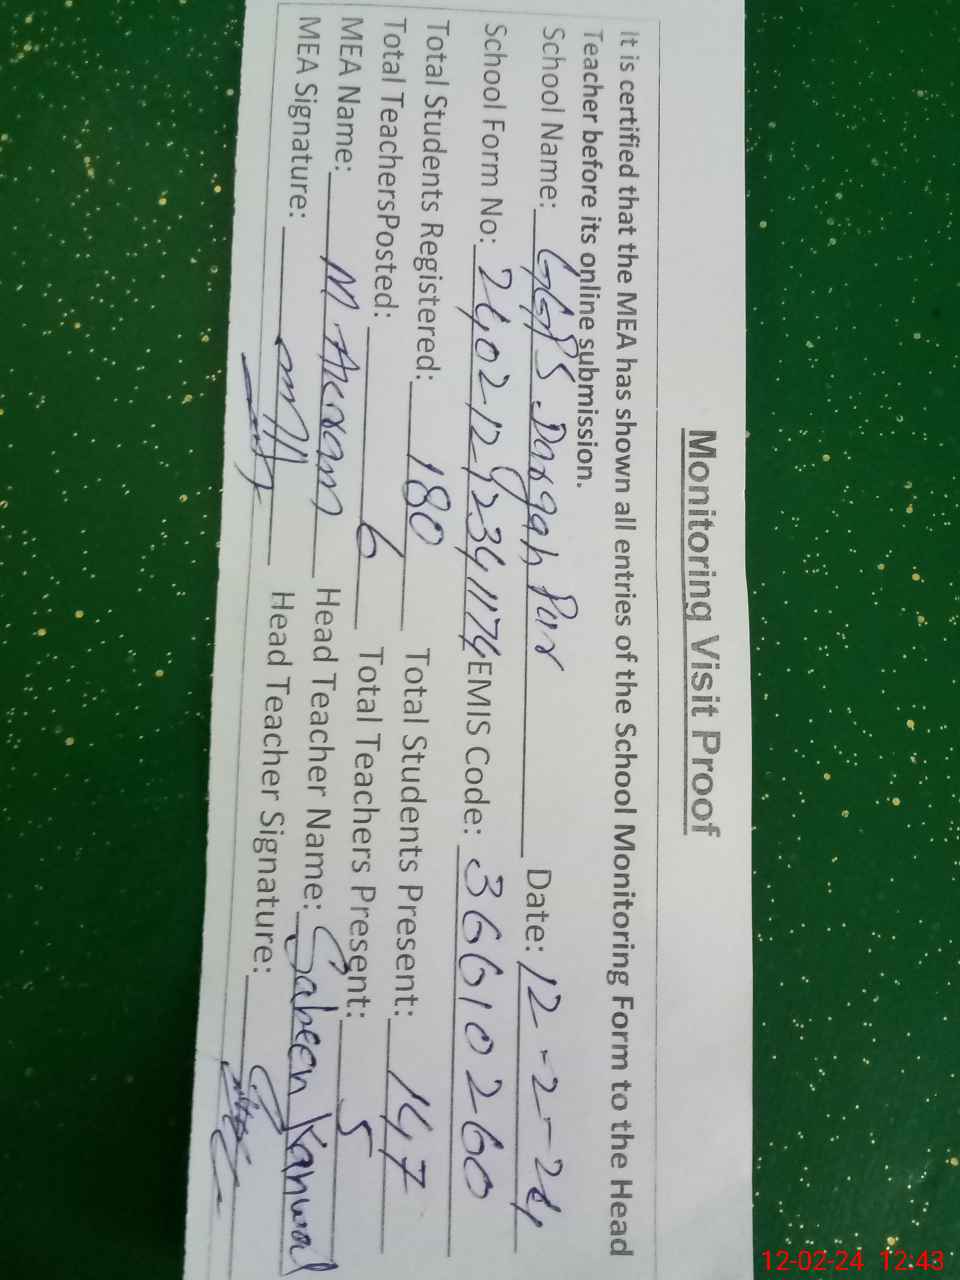 Monitoring Visit Proof
It is certified that the MEA has shown all entries of the School Monitoring Form to the Head
Teacher before its online submission.
School Name: GGPS Dargah Pur Date: 12-2-24
School Form No: 24021292341174 EMIS Code: 36610260
Total Students Registered: 180 Total Students Present: 147
Total TeachersPosted: 6 Total Teachers Present: 5
MEA Name: M Akram Head Teacher Name: Sabeen Kanwal
MEA Signature: Head Teacher Signature:
12-02-24 12:43